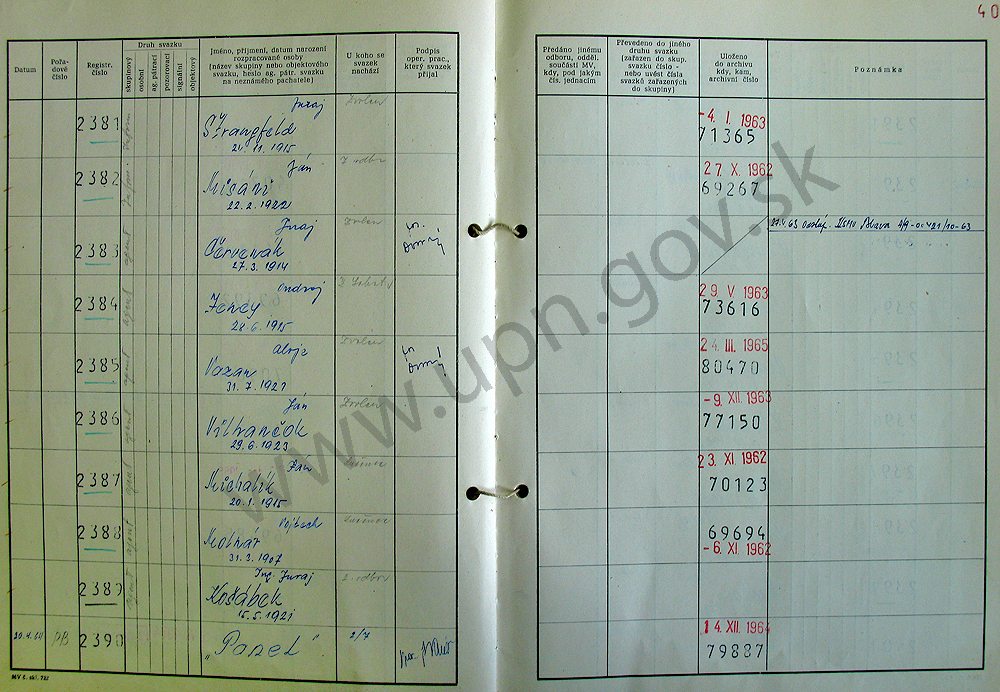 40
Datum
Pořadové číslo
Registr. číslo
Druh svazku
skupinový
osobní
ag. pátrací
pozorovací
signální
objektový
Jméno, příjmení, datum narození
rozpracované osoby
(název skupiny nebo objektového
svazku, heslo ag. pátr. svazku
na neznámého pachatele)
U koho se
svazek
nachází
Podpis
oper. prac.,
který svazek
přijal
Předáno jinému
odboru, odděl.
součásti MV,
kdy, pod jakým
čís. jednacím
Převedeno do jiného
druhu svazku
(zařazen do skup.
svazku číslo -
nebo uvést čísla
svazků zařazených
do skupiny)
Uloženo
do archivu
kdy, kam,
archivní číslo
Poznámka
Juraj
2381 Štrangfeld Zvolen
24. 11. 1915
-4. I. 1963
71365
Ján
2382 Misáni
22. 2. 1922
27. X. 1962
69267
Juraj
2383 agent Červenák Zvolen
27. 3. 1914
Ondrej
2384 agent
28. 6. 1915
29. V. 1963
73616
Alojz
2385 agent Vozan Zvolen
31. 7. 1921
24. III. 1965
80470
Ján
2386 agent Vilhančok Zvolen
29. 6. 1923
-9. XII. 1963
77150
Ján
2387 agent Michalík
20. 1. 1915
23. XI. 1962
70123
Vojtech
2388 agent Molnár
31. 3. 1907
69694
-6. XI. 1962
Ing. Juraj
2389 agent Košábek 2. odbor
15. 5. 1921
20. 4. 64 PB 2390 „Panel" 2/7
14. XII. 1964
79887
www.upn.gov.sk